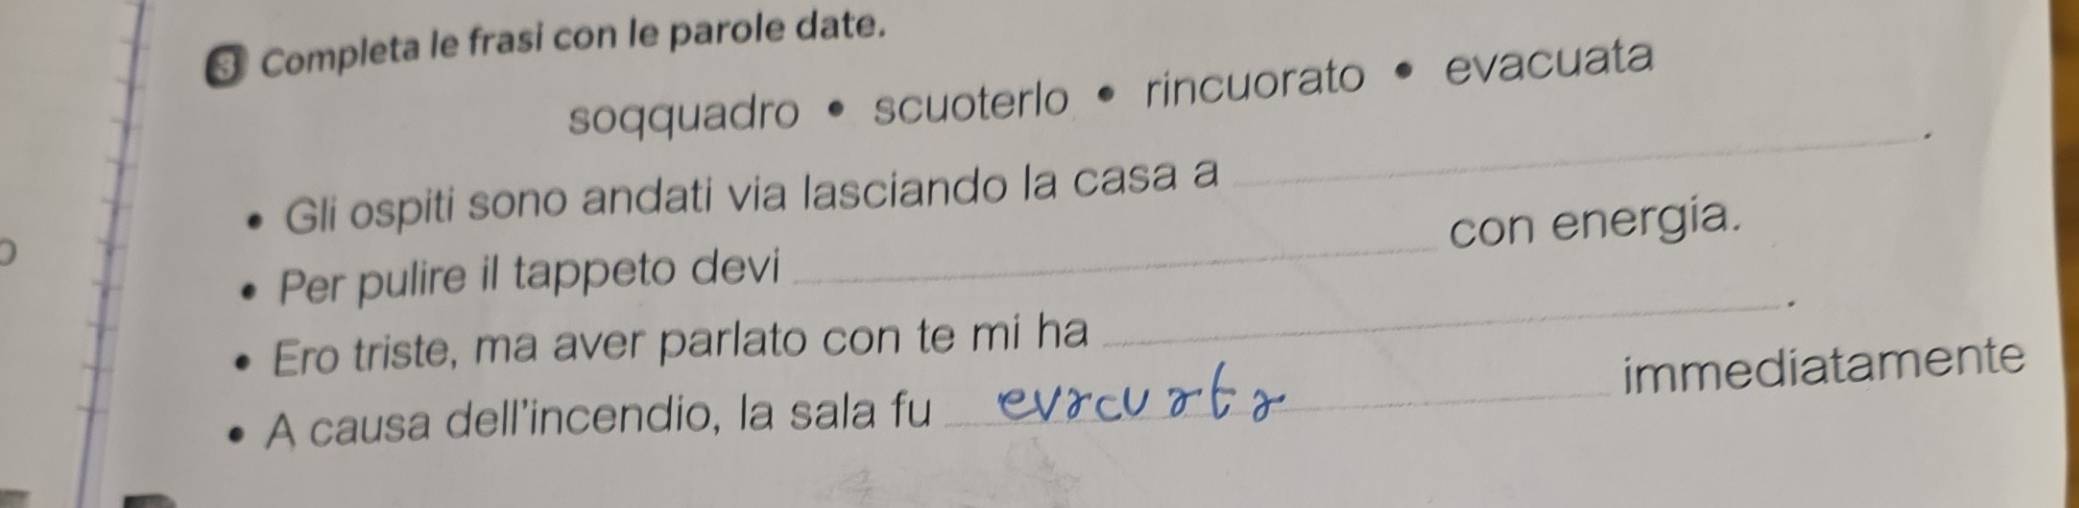 3 Completa le frasi con le parole date.
soqquadro • scuoterlo • rincuorato • evacuata
• Gli ospiti sono andati via lasciando la casa a ____.
• Per pulire il tappeto devi ____ con energia.
• Ero triste, ma aver parlato con te mi ha ____.
• A causa dell'incendio, la sala fu evacuata immediatamente